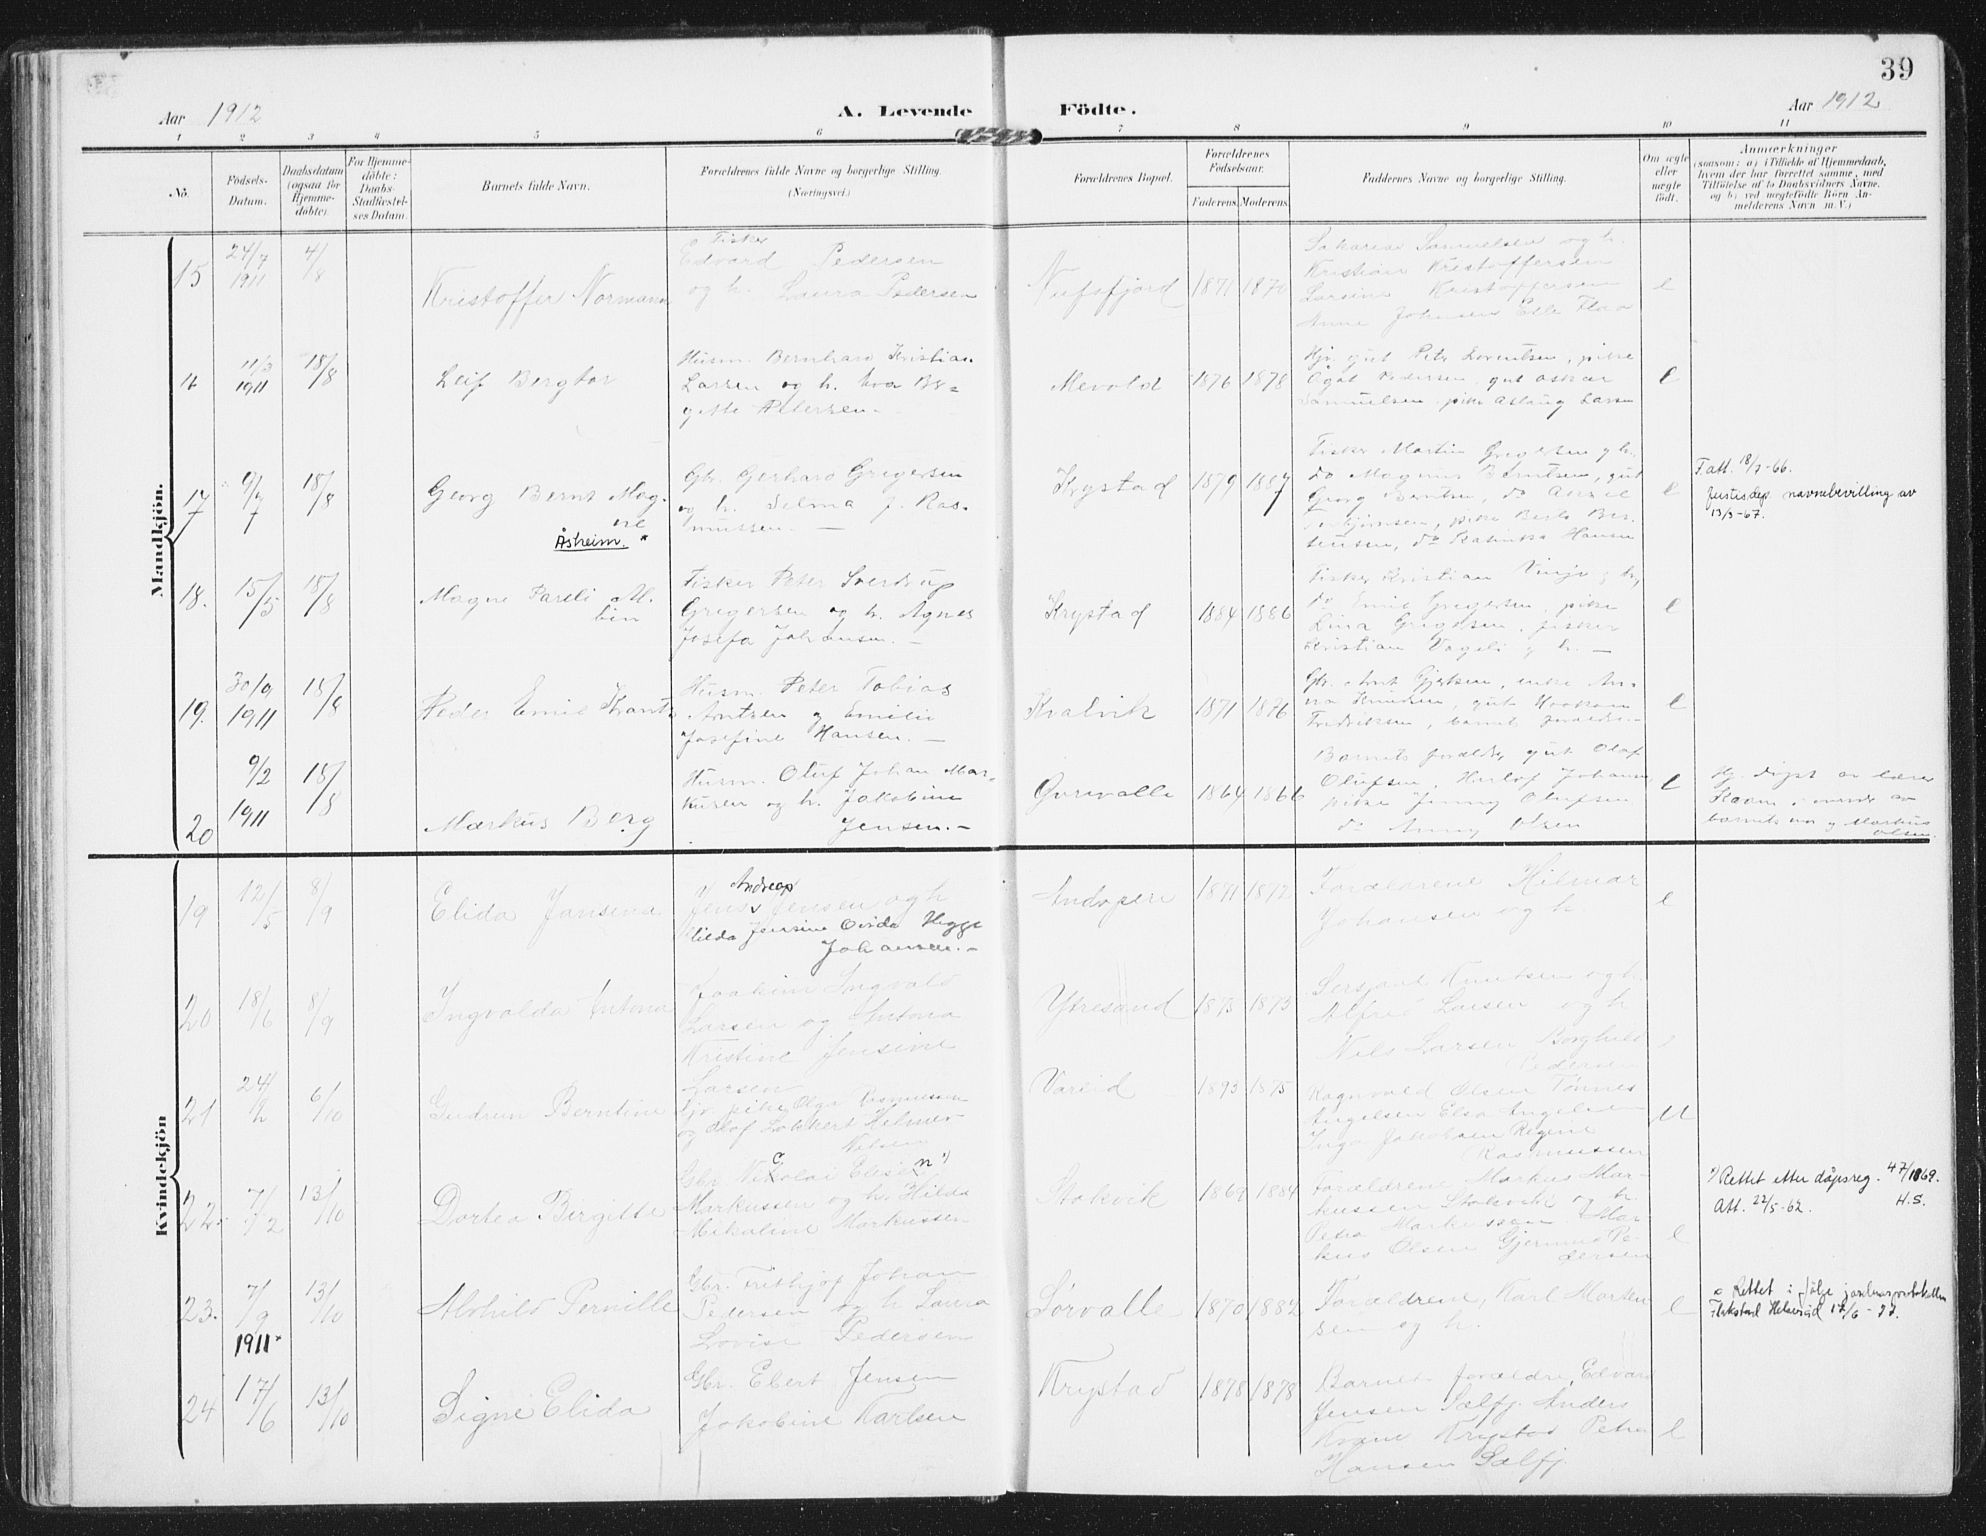 39
Aar 1912
A. Levende
Födte.
Aar 1912
1 2 3 4 5 6 7 8 9 10 11
No.
Födsels-
Datum.
Daabsdatum
(ogsaa for
Hjemme-
døbte).
For Hjemme-
döbte:
Daabs-
Stadfæstel-
ses Datum.
Barnets fulde Navn.
Forældrenes fulde Navne og borgerlige Stilling.
(Næringsvei.)
Forældrenes Bopæl.
Forældrenes
Födselsaar.
Faderens. Moderens.
Faddernes Navne og borgerlige Stilling.
Om ægte
eller
uægte
födt.
Anmærkninger
(saasom: a) i Tilfælde af Hjemmedaab,
hvem der har forrettet samme, med
Tilföielse af to Daabsvidners Navne,
og b) ved uægtefödte Börn An-
melderens Navn m. V.)
Mandkjön.
15
24/7
1911
4/8
Kristoffer Normann
Fisker
Edvard Pedersen
og h. Laura Pedersen
Nufsfjord
1871 1870
Sakarias Samuelsen og h.
Kristian Kristoffersen
Larsine Kristoffersen
Anne Johnsens Elle Flaa
e
16
11/3
1911
18/8
Leif Bergtor
Husm. Bernhard Kristian
Larsen og h. Eva Be=
gitte Petersen.-
Mevold
1876 1878
Hjv. gut Peter Lorentsen, pike
Ågot Pedersen, gut Oskar
Samuelsen, pike Aslaug Larsen
e
17
9/7
18/8
Georg Bernt Mag-
ne
Åsheim. *
Gbr. Gerhard Gregersen
og h. Selma J. Ras-
mussen. -
Krystad
1879 1887
Fisker Martin Gregersen og h.
do Magnus Berntsen, gut
Georg Berntsen, do
Torbjørnsen, pike Berta Ber-
ntsen, do Hansen
e
Fatt. 18/3-66.
Justisdep. navnebevilling av
13/3-67.
18.
15/5
18/8
Magne Pareli Al-
bin
Fisker Peter Sverdrup
Gregersen og h. Agnes
Josefa Johansen. -
Krystad
1884 1886
Fisker Kristian Vinje og h,
do Emil Gregersen, pike
Lina Gregersen, fisker
Kristian Vageli og h. -
e
19.
30/9
1911
18/8
Peder Emil Krantz
Husm. Peter Tobias
Arntzen og Emilie
Josefine Hansen. -
Kvalvik
1871 1876
Gbr. Arnt Gjertsen, enke An-
na Knudsen, gut Haakon
Fredriksen, barnets foreldre.-
e
20
9/2
1911
18/8
Markus Berg
Husm. Oluf Johan Mar-
kusen og h. Jakobine
Jensen.-
Qurevalle
1864 1866
Barnets forældre, gut Olaf
Olufsen, Herlof Johansen,
pike Jenny Olufsen
do Anny Olsen
e
Hj. døpt av lærer
Kvam i nærvær av
barnets mor og Markus
Olsen.
Kvindekjön
19
12/5
8/9
Elida Jansena
Andreas
Jens Jensen og h
Hilda Jensine Ovida Hegge
Johansen.-
Andopen
1871 1872
Forældrene Hilmar
Johansen og h.
e
20
18/6
8/9
Ingvalda Antona
Joakim Ingvald
Larsen og Antona
Kristine Jensine
Larsen
Ytresand
1873 1873
Sersjant Knutsen og h.
Alfred Larsen og h
Nils Larsen Borghild
Pedersen
e
21
24/2
6/10
Gudrun Berntine
Tjv. pike Olga Rasmussen
og Olaf Lokkert Helmer
Nilsen
Vareid
1893 1875
Ragnvald Olsen Tønnes
Angelsen Elsa Angelsen
Inga Jakobsen Regine
Rasmussen
u
22.
7/2
13/10
Dortea Birgitte
c n *)
Gbr. Nikolai Elisen
Markussen og h. Hilda
Mikaline Markussen
Stokvik
1869 1884
Forældrene Markus Mar-
kussen Stokvik og h.
Petra Markussen. Mar
kus Olsen Gjermund Pe-
dersen
e
*) Rettet etter dåpsreg. 47/1869.
Att. 22/5-62. H.S.
23.
7/9
1911*
13/10
Alvhild Pernille
Gbr. Frithjof Johan
Pedersen og h. Laura
Lovise Pedersen
Sørvalle
1870 1882
Forældrene, Karl Marken
sen og h.
e
* Rettet i følge jordmorprotokollen
Flakstad Helseråd 17/6-77.
24
17/6
13/10
Signe Elida
Gbr. Ebert Jensen
Jakobine Karlsen
Krystad
1878 1878
Barnets forældre, Edvard
Jensen Sælfj. Anders
Kvane Krystad Petra
Hansen Sælfj.
e